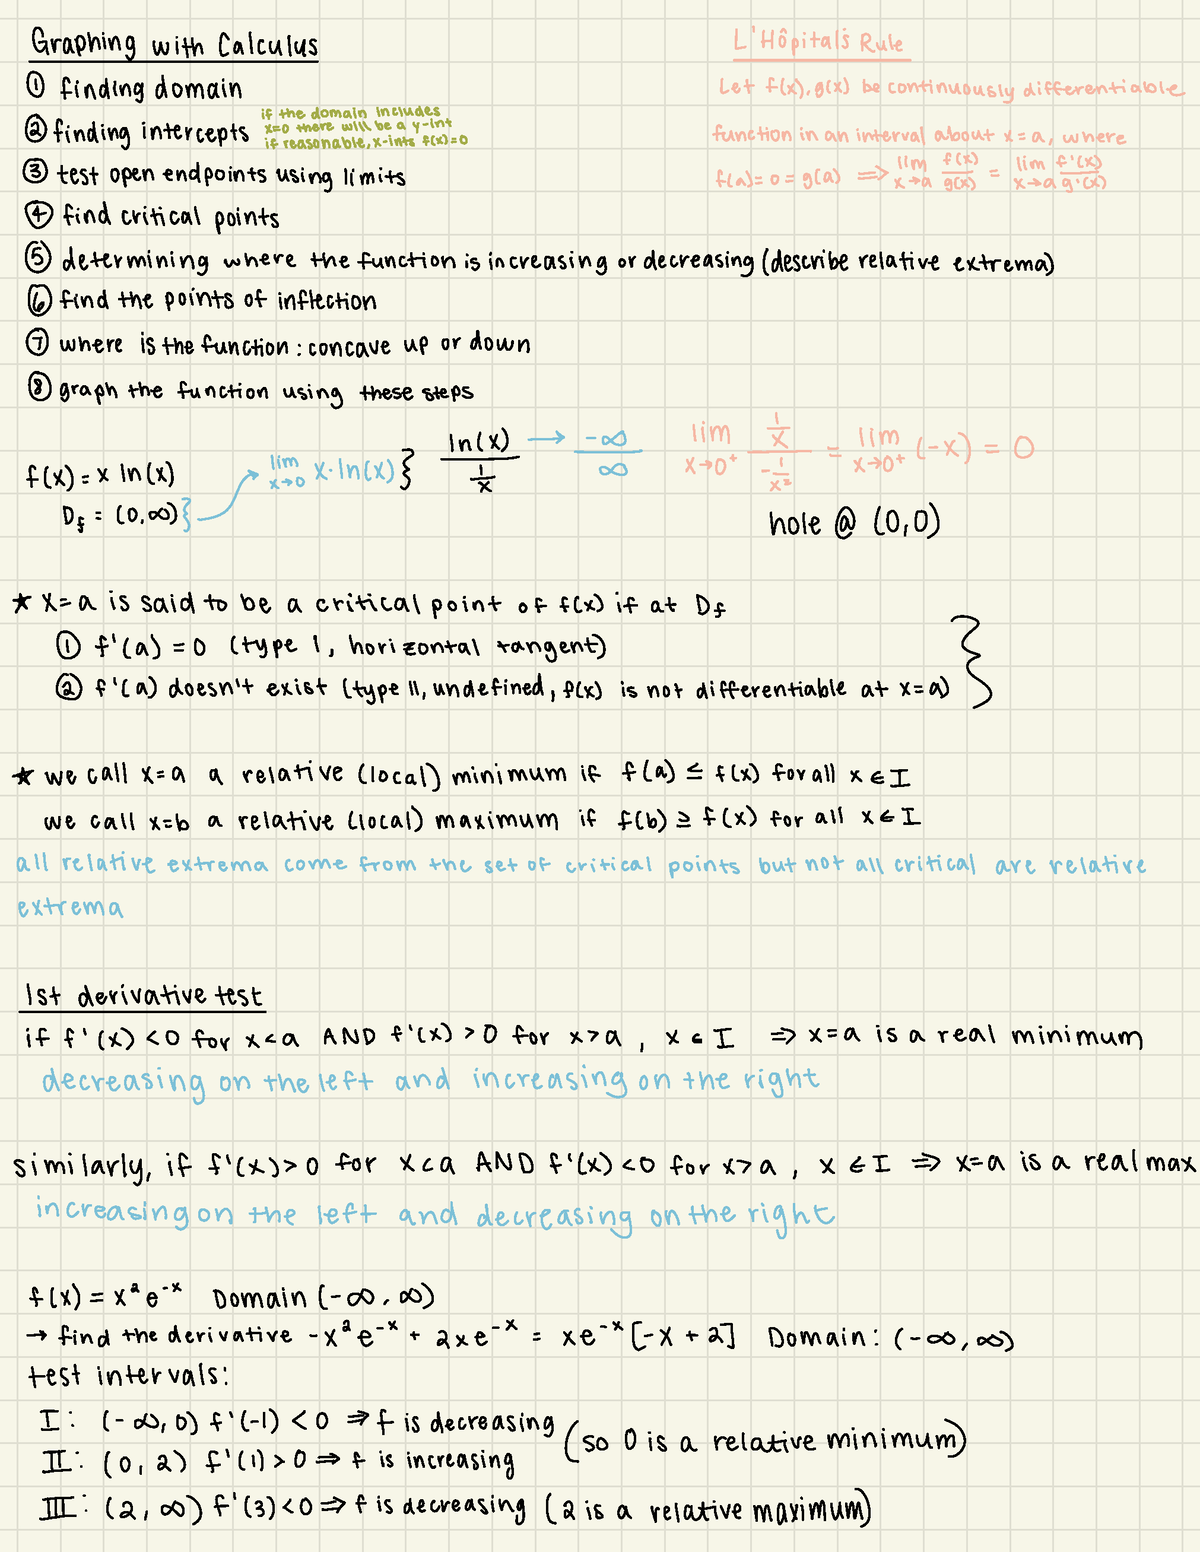 Graphing with Calculus
① finding domain
② finding intercepts if the domain includes
x=0 there will be a y-int
if reasonable, x-ints f(x)=0
③ test open endpoints using limits
④ find critical points
⑤ determining where the function is increasing or decreasing (describe relative extrema)
⑥ find the points of inflection
⑦ where is the function: concave up or down
⑧ graph the function using these steps
L'Hôpital's Rule
Let f(x), g(x) be continuously differentiable
function in an interval about x=a, where
f(a)=0=g(a) ⟹ lim x→a f(x)/g(x) = lim x→a f'(x)/g'(x)
f(x)= x ln(x)
D_f = (0,∞)} → lim x→0 x·ln(x)} ln(x)/(1/x) → -∞/∞ lim x→0⁺ (1/x)/(-1/x²) = lim x→0⁺ (-x) = 0
hole @ (0,0)
★ x=a is said to be a critical point of f(x) if at D_f
① f'(a) = 0 (type I, horizontal tangent)
② f'(a) doesn't exist (type II, undefined, f(x) is not differentiable at x=a)
★ we call x=a a relative (local) minimum if f(a) ≤ f(x) for all x ∈ I
we call x=b a relative (local) maximum if f(b) ≥ f(x) for all x ∈ I
all relative extrema come from the set of critical points but not all critical are relative
extrema
1st derivative test
if f'(x) <0 for x<a AND f'(x) >0 for x>a, x ∈ I ⟹ x=a is a real minimum
decreasing on the left and increasing on the right
similarly, if f'(x)>0 for x<a AND f'(x)<0 for x>a, x ∈ I ⟹ x=a is a real max
increasing on the left and decreasing on the right
f(x) = x²e⁻ˣ Domain (-∞,∞)
→ find the derivative -x²e⁻ˣ + 2xe⁻ˣ = xe⁻ˣ[-x+2] Domain: (-∞,∞)
test intervals:
I: (-∞,0) f'(-1) <0 ⟹ f is decreasing (so 0 is a relative minimum)
II: (0,2) f'(1)>0 ⟹ f is increasing
III: (2,∞) f'(3)<0 ⟹ f is decreasing (2 is a relative maximum)